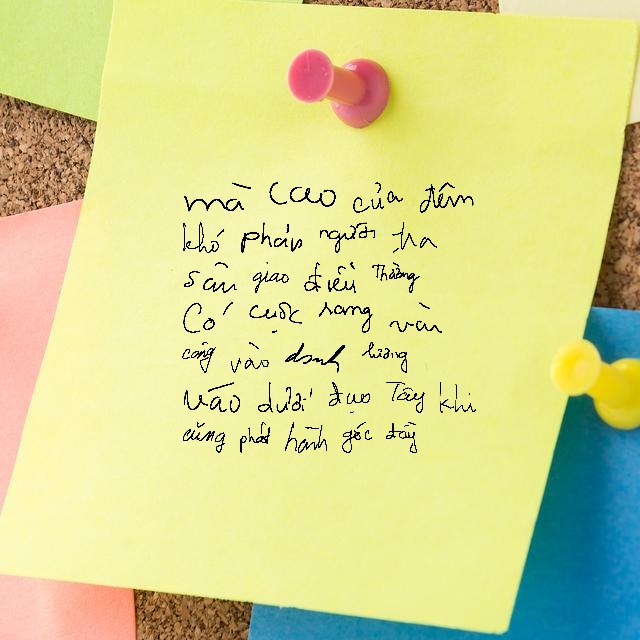 mà cao của đêm
khó phán người tra
sân giao điều Thường
Có cuộc rang vàn
công vào danh lương
vào dưới đạo Tây khi
cũng phát hành gốc đầy